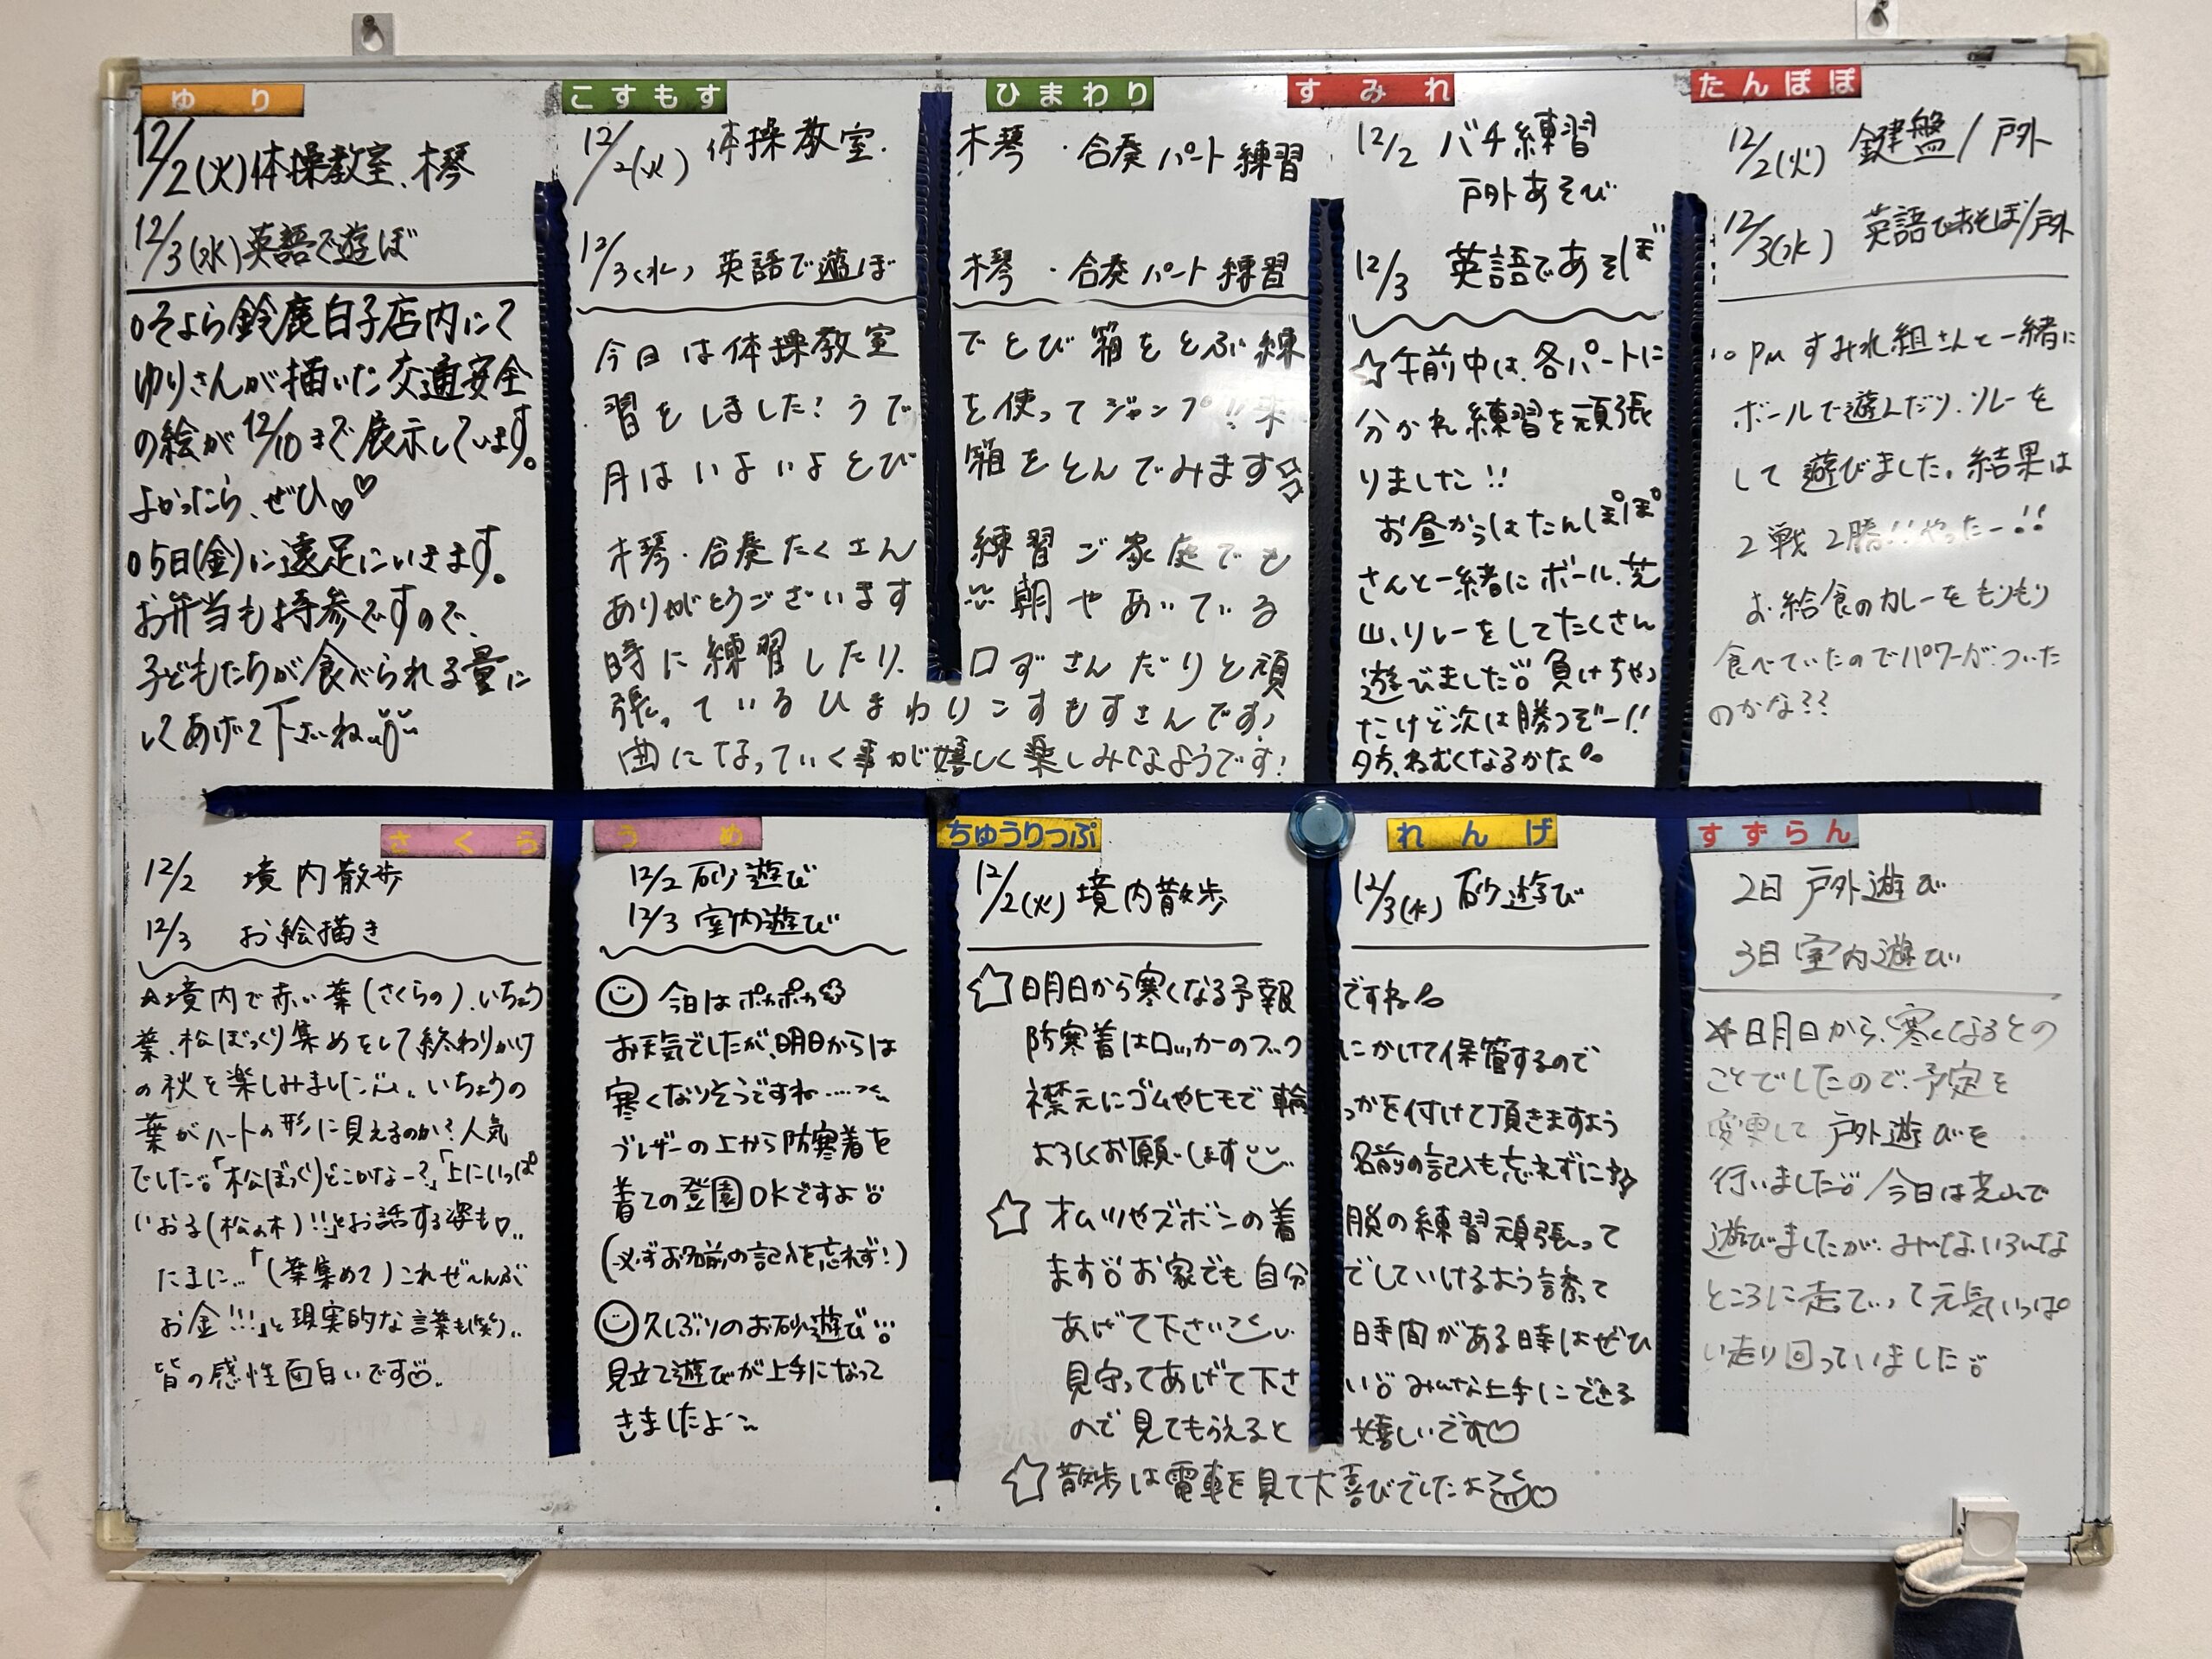 ゆり
12/2(火)体操教室、木琴
12/3(水)英語で遊ぼ
○そよら鈴鹿白子店内にて
ゆりさんが描いた交通安全
の絵が12/10まで展示しています。
よかったら、ぜひ♡♡
○5日(金)に遠足にいきます。
お弁当も持参ですので、
子どもたちが食べられる量に
してあげて下さいね
こすもす ひまわり
12/2(火) 体操教室. 木琴・合奏パート練習
12/3(水) 英語で遊ぼ 木琴・合奏パート練習
今日は体操教室でとび箱をとぶ練
習をしました!うでを使ってジャンプ!!来
月はいよいよとび箱をとんでみます☆
木琴・合奏たくさん練習ご家庭でも
ありがとうございます朝やあいている
時に練習したり、口ずさんだりと頑
張っているひまわりこすもすさんです!
曲になっていく事が嬉しく楽しみなようです!
すみれ
12/2 バチ練習
戸外あそび
12/3 英語であそぼ
☆午前中は、各パートに
分かれ練習を頑張
りました!!
お昼からはたんぽぽ
さんと一緒にボール、芝
山、リレーをしてたくさん
遊びました。負けちゃっ
たけど次は勝つぞー!!
夕方、ねむくなるかな
たんぽぽ
12/2(火) 鍵盤/戸外
12/3(水) 英語であそぼ/戸外
○PMすみれ組さんと一緒に
ボールで遊んだり、リレーを
して遊びました。結果は
2戦2勝!!やったー!!
お給食のカレーをもりもり
食べていたのでパワーがついた
のかな??
さくら
12/2 境内散歩
12/3 お絵描き
☆境内で赤い葉(さくらの)、いちょう
葉、松ぼっくり集めをして終わりかけ
の秋を楽しみました。いちょうの
葉がハートの形に見えるのか?人気
でした。「松ぼっくりどこかなー?」「上にいっぱ
いおる(松の木)!!」とお話する姿も♡
たまに…「(葉集めて)これぜ〜んぶ
お金!!!」と現実的な言葉も(笑)
皆の感性面白いです
うめ
12/2 砂遊び
12/3 室内遊び
今日はポカポカ
お天気でしたが、明日からは
寒くなりそうですね……
ブレザーの上から防寒着を
着ての登園OKですよ
(必ずお名前の記入を忘れず!)
久しぶりのお砂遊び
見立て遊びが上手になって
きましたよ
ちゅうりっぷ れんげ
12/2(火) 境内散歩 12/3(水) 砂遊び
☆明日から寒くなる予報ですね
防寒着はロッカーのフックにかけて保管するので
襟元にゴムやヒモで輪っかを付けて頂きますよう
よろしくお願いします 名前の記入も忘れずに
☆オムツやズボンの着脱の練習頑張って
ます。お家でも自分でしていけるよう誘って
あげて下さい 時間がある時はぜひ
見守ってあげて下さい。みんな上手にできる
ので見てもらえると嬉しいです♡
☆散歩は電車を見て大喜びでしたよ♡
すずらん
2日 戸外遊び
3日 室内遊び
☆明日から、寒くなるとの
ことでしたので、予定を
変更して戸外遊びを
行いました。今日は芝山で
遊びましたが、みんないろんな
ところに走って元気いっぱ
い走り回っていました